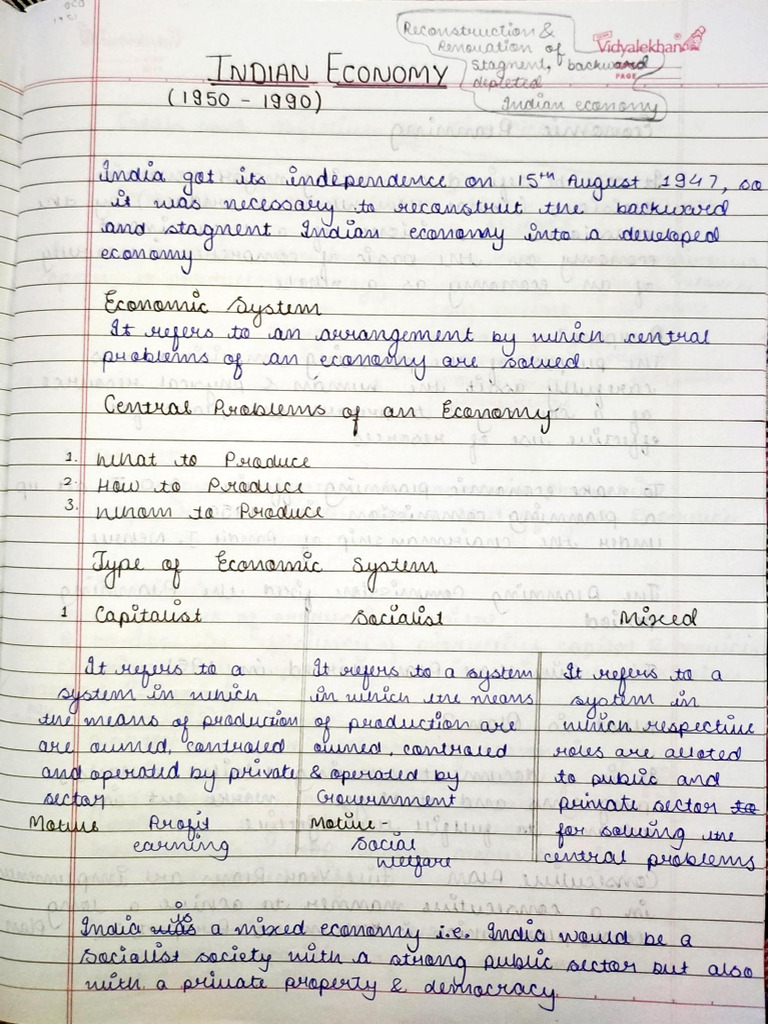 Reconstruction &
Renovation of
stagnent, backward
depleted
Indian economy
Vidyalekhan
PAGE
INDIAN ECONOMY
(1950 - 1990)
India got its independence on 15th August 1947, so
it was necessary to reconstrut the backward
and stagnent Indian economy into a developed
economy
Economic System
It refers to an arrangement by which central
problems of an economy are solved
Central Problems of an Economy
1. What to Produce
2. How to Produce
3. Whom to Produce
Type of Economic System
1 Capitalist Socialist Mixed
It refers to a
system in which
the means of production
are owned, controled
and operated by private
sector
Motive Profit
earning
It refers to a system
in which the means
of production are
owned, controled
& operated by
Government
Motive -
Social
welfare
It refers to a
system in
which respective
roles are alloted
to public and
private sector to
for solving the
central problems
is
India was a mixed economy i.e. India would be a
socialist society with a strong public sector but also
with a private property & democracy